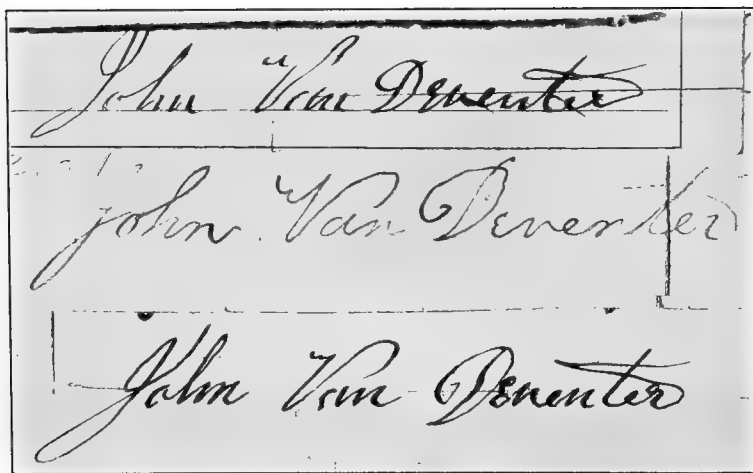 John Van Deventer
John Van Deventer
John Van Deventer